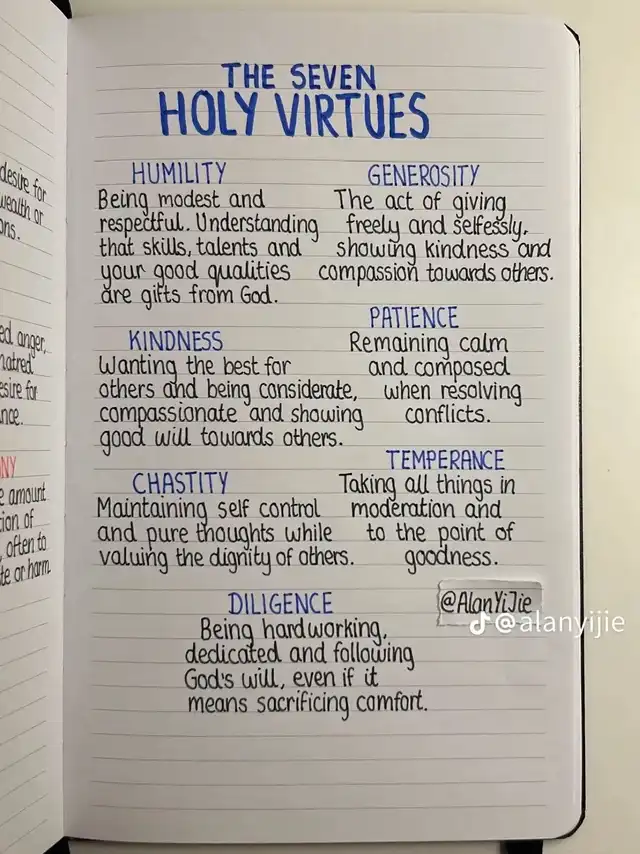 desire for
wealth or
ons.
ed, anger,
hatred
esire for
nce.
NY
e amount
tion of
, often to
te or harm
THE SEVEN
HOLY VIRTUES
HUMILITY
Being modest and
respectful. Understanding
that skills, talents and
your good qualities
are gifts from God.
GENEROSITY
The act of giving
freely and selfessly,
showing kindness and
compassion towards others.
KINDNESS
Wanting the best for
others and being considerate,
compassionate and showing
good will towards others.
PATIENCE
Remaining calm
and composed
when resolving
conflicts.
CHASTITY
Maintaining self control
and pure thoughts while
valuing the dignity of others.
TEMPERANCE
Taking all things in
moderation and
to the point of
goodness.
DILIGENCE
Being hardworking,
dedicated and following
God's will, even if it
means sacrificing comfort.
@AlanYiJie
@alanyijie